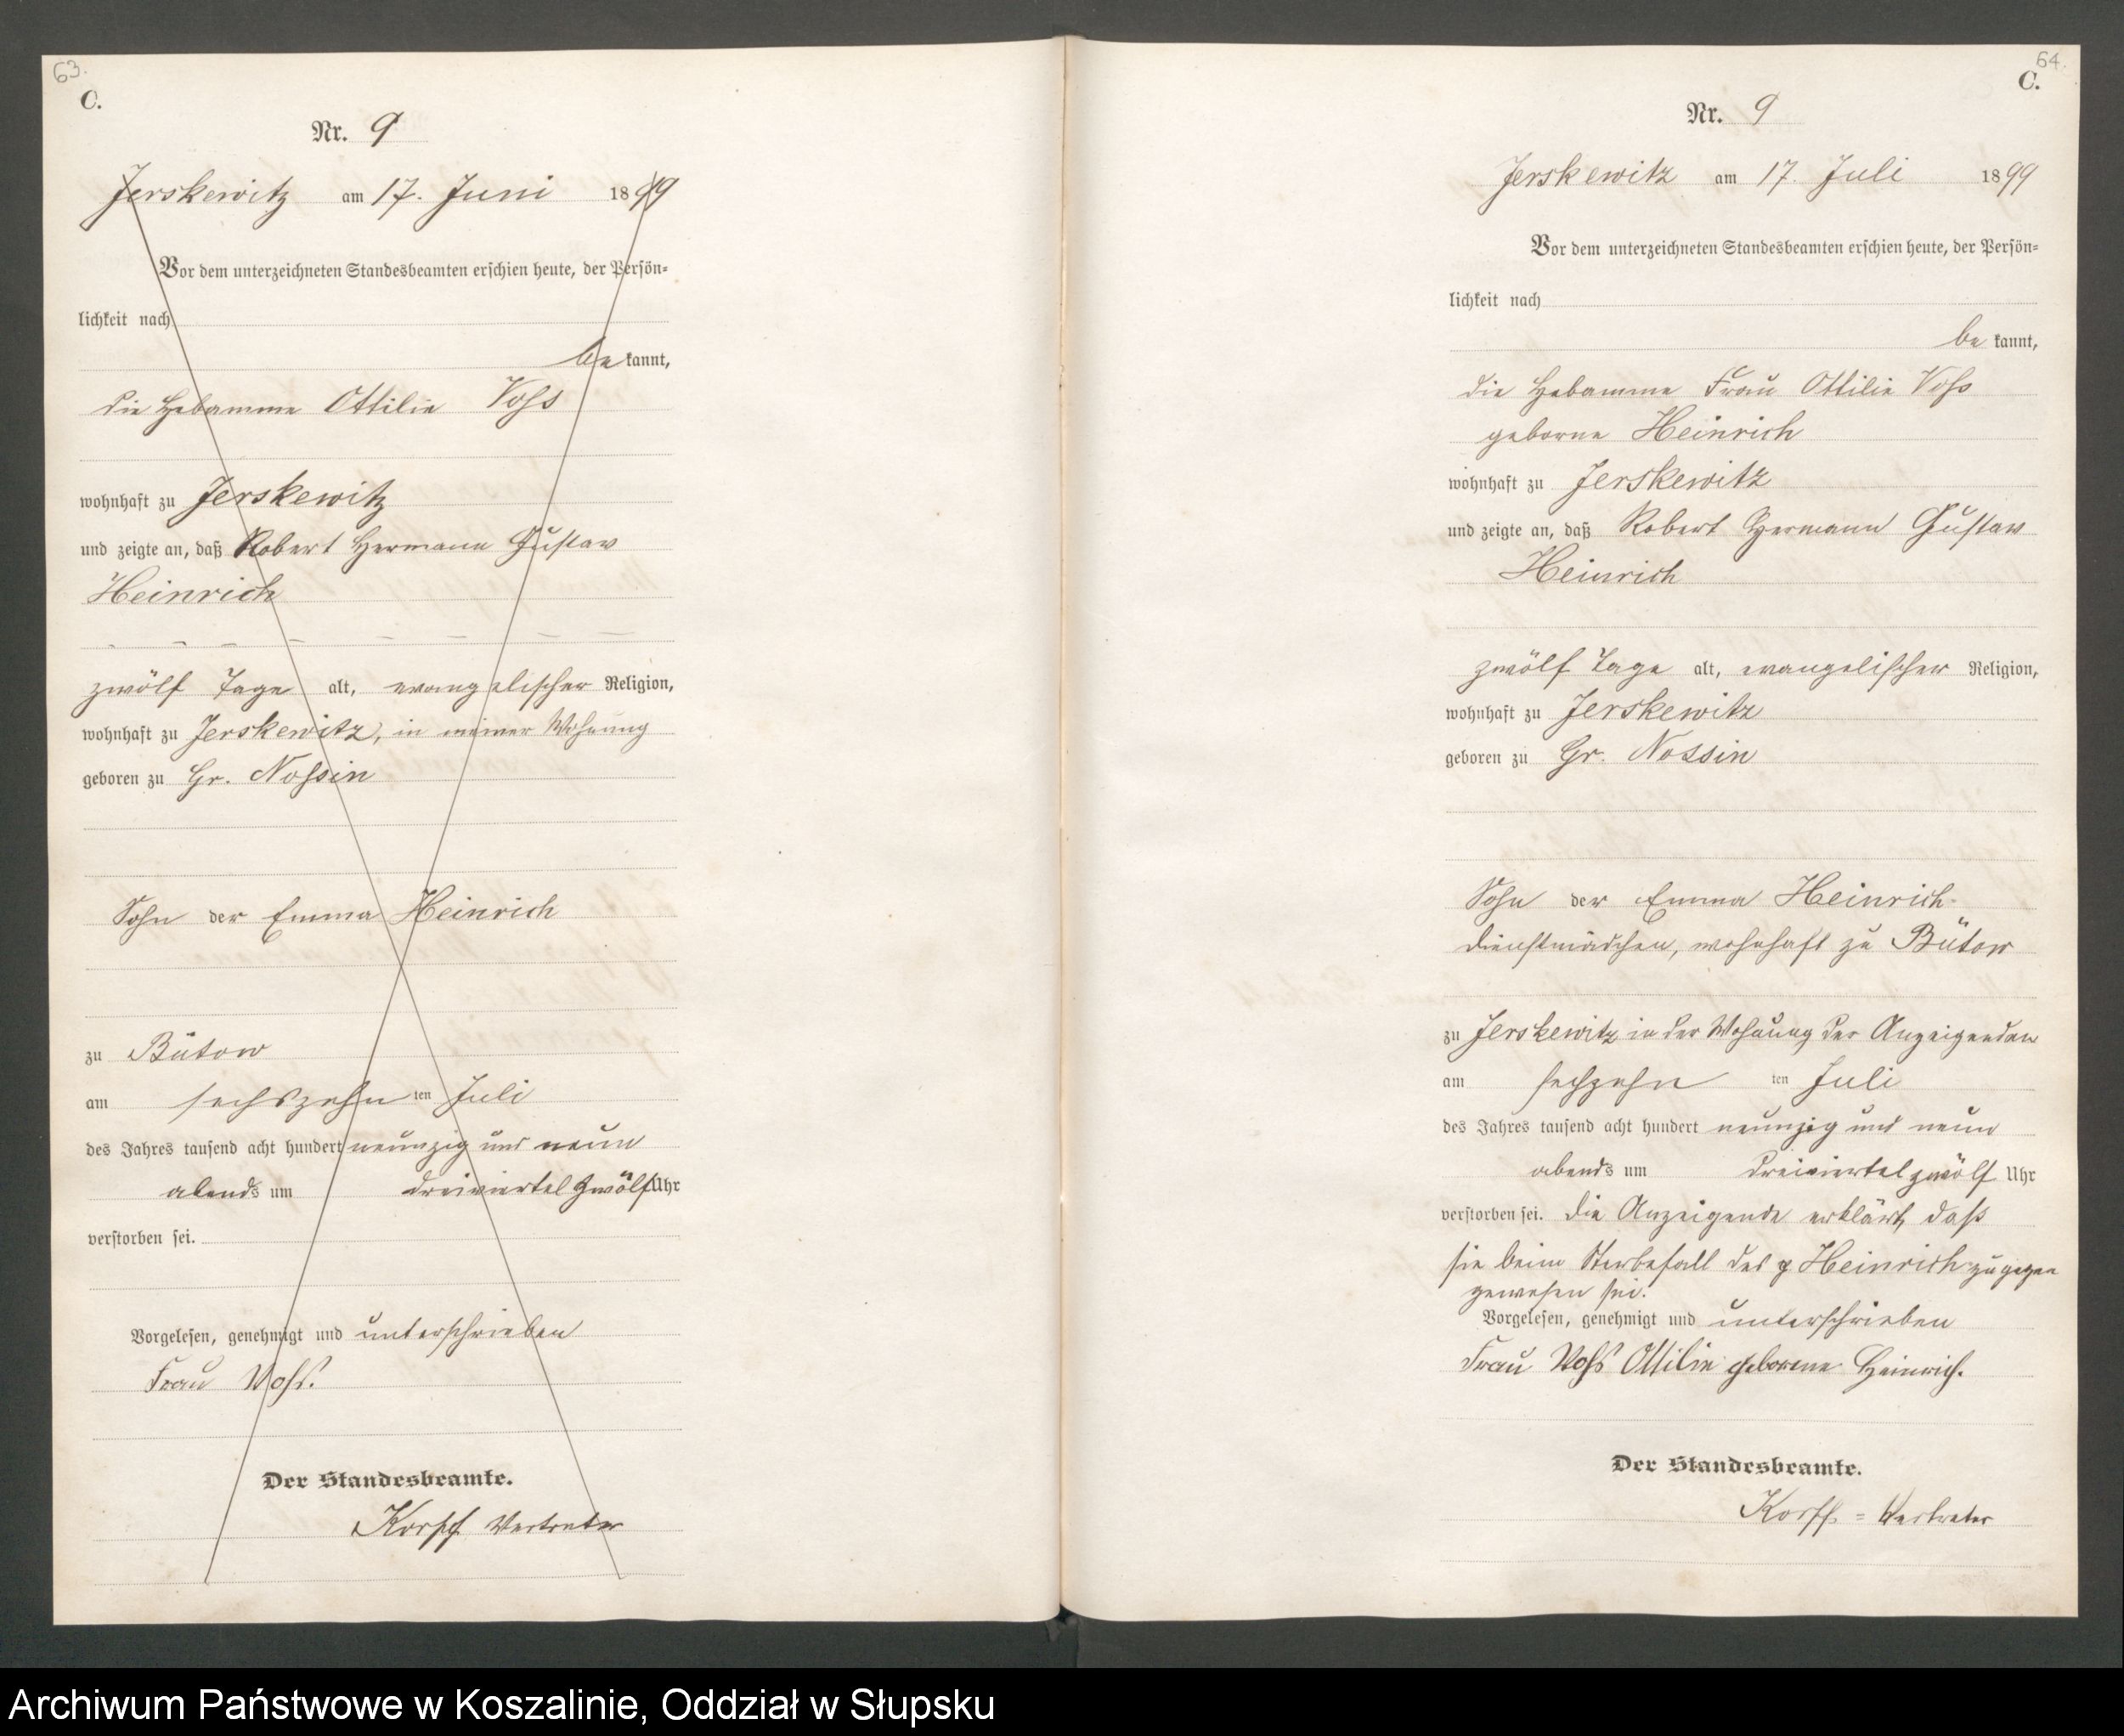 63.
C.
Nr. 9
Jerskewitz am 17. Juni 1899
Vor dem unterzeichneten Standesbeamten erschien heute, der Persön-
lichkeit nach
be kannt,
die Hebamme Ottilie Voß
wohnhaft zu Jerskewitz
und zeigte an, daß Robert Hermann Gustav
Heinrich
zwölf Tage alt, evangelischer Religion,
wohnhaft zu Jerskewitz, in meiner Wohnung
geboren zu Gr. Nossin
Sohn der Emma Heinrich
zu Bütow
am sechszehn ten Juli
des Jahres tausend acht hundert neunzig und neun
abends um dreiviertel zwölf Uhr
verstorben sei.
Vorgelesen, genehmigt und unterschrieben
Frau Voß.
Der Standesbeamte.
Korff Vertreter
64.
C.
Nr. 9
Jerskewitz am 17. Juli 1899
Vor dem unterzeichneten Standesbeamten erschien heute, der Persön-
lichkeit nach
be kannt,
die Hebamme Frau Ottilie Voß
geborne Heinrich
wohnhaft zu Jerskewitz
und zeigte an, daß Robert Hermann Gustav
Heinrich
zwölf Tage alt, evangelischer Religion,
wohnhaft zu Jerskewitz
geboren zu Gr. Nossin
Sohn der Emma Heinrich
Dienstmädchen, wohnhaft zu Bütow
zu Jerskewitz in der Wohnung der Anzeigenden
am sechzehn ten Juli
des Jahres tausend acht hundert neunzig und neun
abends um dreiviertel zwölf Uhr
verstorben sei. Die Anzeigende erklärt, daß
sie beim Sterbefall des p Heinrich zugegen
gewesen sei.
Vorgelesen, genehmigt und unterschrieben
Frau Voß Ottilie geborene Heinrich.
Der Standesbeamte.
Korff = Vertreter
Archiwum Państwowe w Koszalinie, Oddział w Słupsku